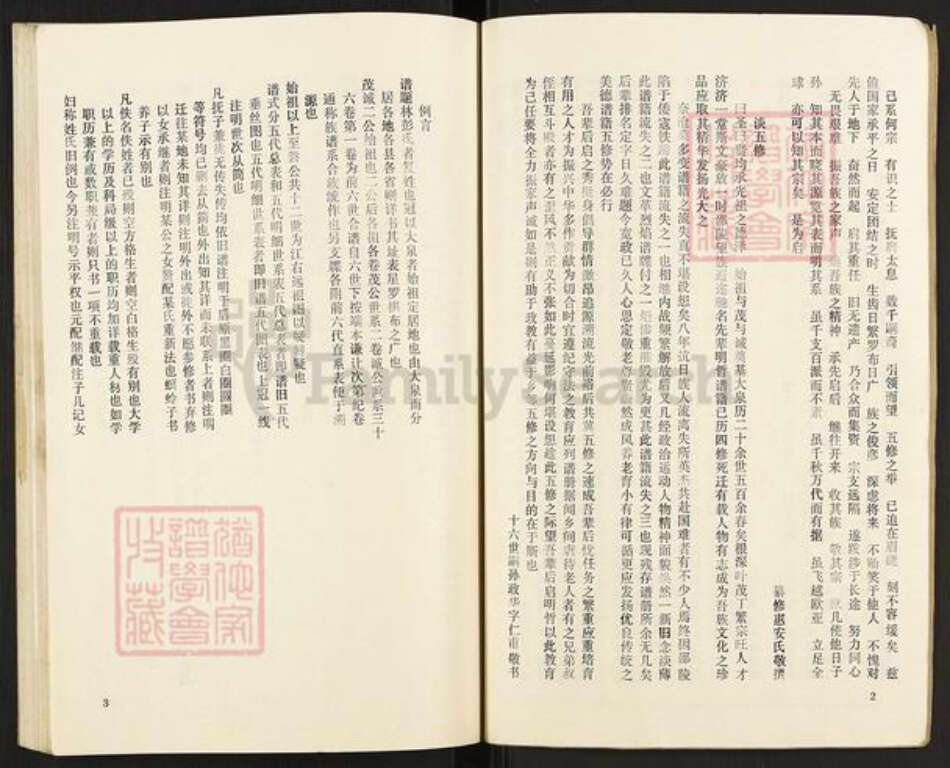 己系何宗 有识之士 抚膺太息 数千嗣裔 引领而望 五修之举 已迫在眉睫 刻不容缓矣 兹
值国家承平之日 安定团结之时 生齿日繁罗布日广 族之俊彦 深虑将来 不贻笑于他人 不愧对
先人于地下 奋然而起 肩其重任 旧无遗产 乃合众而集资 宗支远隔 遂跋涉于长途 努力同心
无畏艰难 振吾族之家声 吾族之精神 承先启后 继往开来 收其族 敬其宗 几使他日子
孙 知其本而晓其源览其表而明其系 虽千支百派而不紊 虽千秋万代而有据 虽飞越欧亚 立足全
球 亦可以知其宗矣 是为启
纂修惠安氏敬撰
谈五修
曰圣 贤均承先祖之 始祖与茂与诚奠基大泉历二十余世五百余春矣根深叶茂丁繁宗旺人才
济济一堂斯文豪放一时 望族 名先辈明哲谱籍已历四修死迁有载人物有志成为吾族文化之珍
品应取其精华发扬光大之
奈沧 多变谱籍之流失直不堪设想矣八年抗日族人流离失所英 共赴国难者有不少人焉终因邵陵
陷于倭寇铁 此谱籍流失之一也相继内战频繁解放后又几经政治运动人物精神面貌焕然一新旧念淡薄
此谱籍流失之二也文革烈焰谱牒付之一炬惨重 毁尤为更甚此谱籍流失之三也现残存谱册所余无几矣
后辈排名定字日久难题今宽政已久人心思定敬老尊贤 然成风养老育小有律可循更应发扬优良传统之
美德谱籍五修势在必行
吾辈后启之秀挺身倡导群情激昂追源溯流光前裕后共冀五修之速成吾辈后忧任务之繁重应重培育
有用之人才为振兴中华多作贡献为切合时宜遵纪守法之教育应列谱册据闻乡间虐待老人者有之兄弟叔
侄相互斗殴者亦有之 风不 正义不张如此蔓延影响何堪设想趁此五修之际望吾辈后启明哲皆以此教育
为己任要将全力振家声诚如是则有助于我教有益于乡 五修之方向与目的在于斯也
十六世嗣孙政华字仁甫敬书
2
例言
谱题林彭氏者复姓也冠以大泉者始祖定居地也由大泉而分
居各地各县各省则详书其 表星罗棋布之广也
茂诚二公给祖也二公后各祖各卷茂公世系二卷诚公世系三十
六卷第一卷为前六世合谱自六世下按端本谦让次第纪卷
通称族谱系合族统作也另支牒各附前六代直系表便于溯
源也
始祖以上至 公共十二世为江右远祖图以 疑也
谱式分五代总表和五代明细世系表五代总表者即谱旧五代
垂丝图也五代明细世系表者即旧谱五代图表也上冠 线
注明世次从简也
凡抚子兼祧无传失传均依旧谱注明于后原黑圈白圈圆圈
等符号均已删去从简也外出知其详而未联系上者则注明
迁往某地未知其详则注明外出或徙外不愿参修者书弃修
以女承继者则注明某公之女赘配某氏重新法也螟蛉子书
养子示有别也
凡佚名佚姓者已殁则空方格生者则空白格生殁有别也大学
以上的学历及科局级以上的职历均加详载重人物也如学
职历兼有或数职兼有者则只书一项不重载也
妇称姓氏旧例也今另注明号示平权也元配继配注子几记女
3
猶他家
譜學會
收藏
FamilySearch